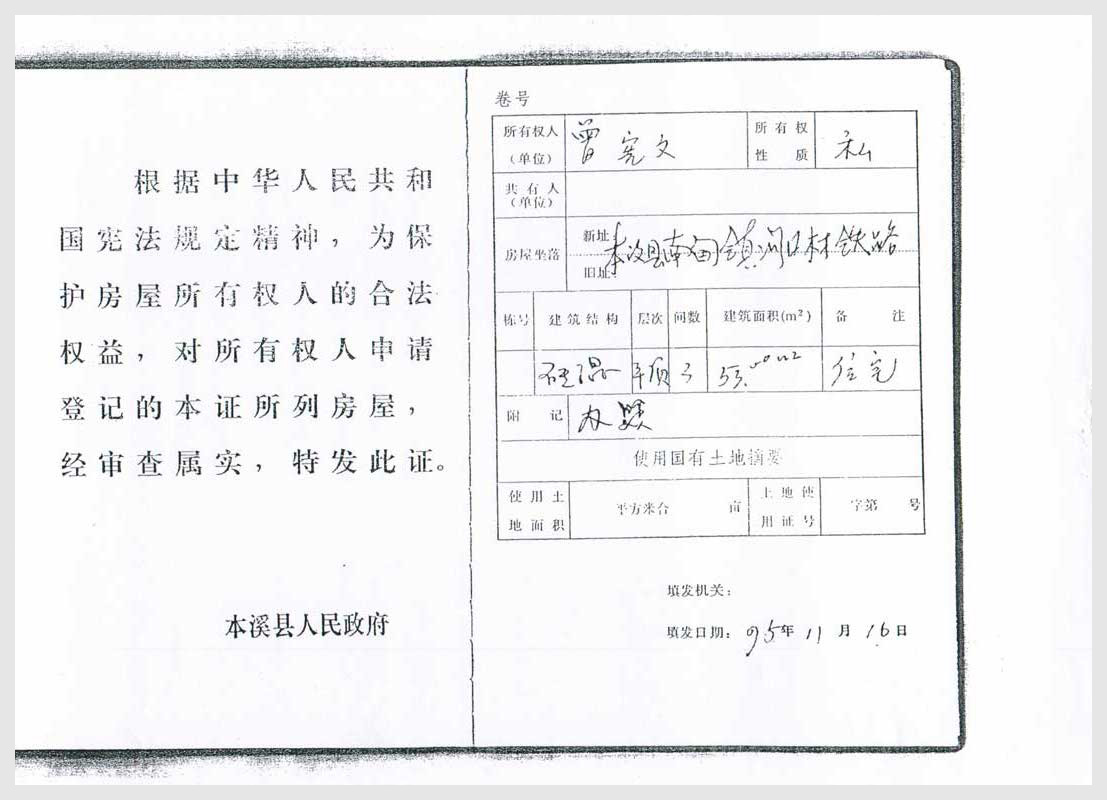 根据中华人民共和
国宪法规定精神，为保
护房屋所有权人的合法
权益，对所有权人申请
登记的本证所列房屋，
经审查属实，特发此证。
本溪县人民政府
卷号
所有权人
（单位）
曾宪文
所有权
性质
私
共有人
（单位）
房屋坐落
新址：
本溪县南甸镇河口村铁路
旧址：
栋号 建筑结构 层次 间数 建筑面积(m²) 备注
砖混 平顶 3 住宅
附记
使用国有土地摘要
使用土
地面积
平方米合 亩
土地使
用证号
字第 号
填发机关：
填发日期：95年11月16日